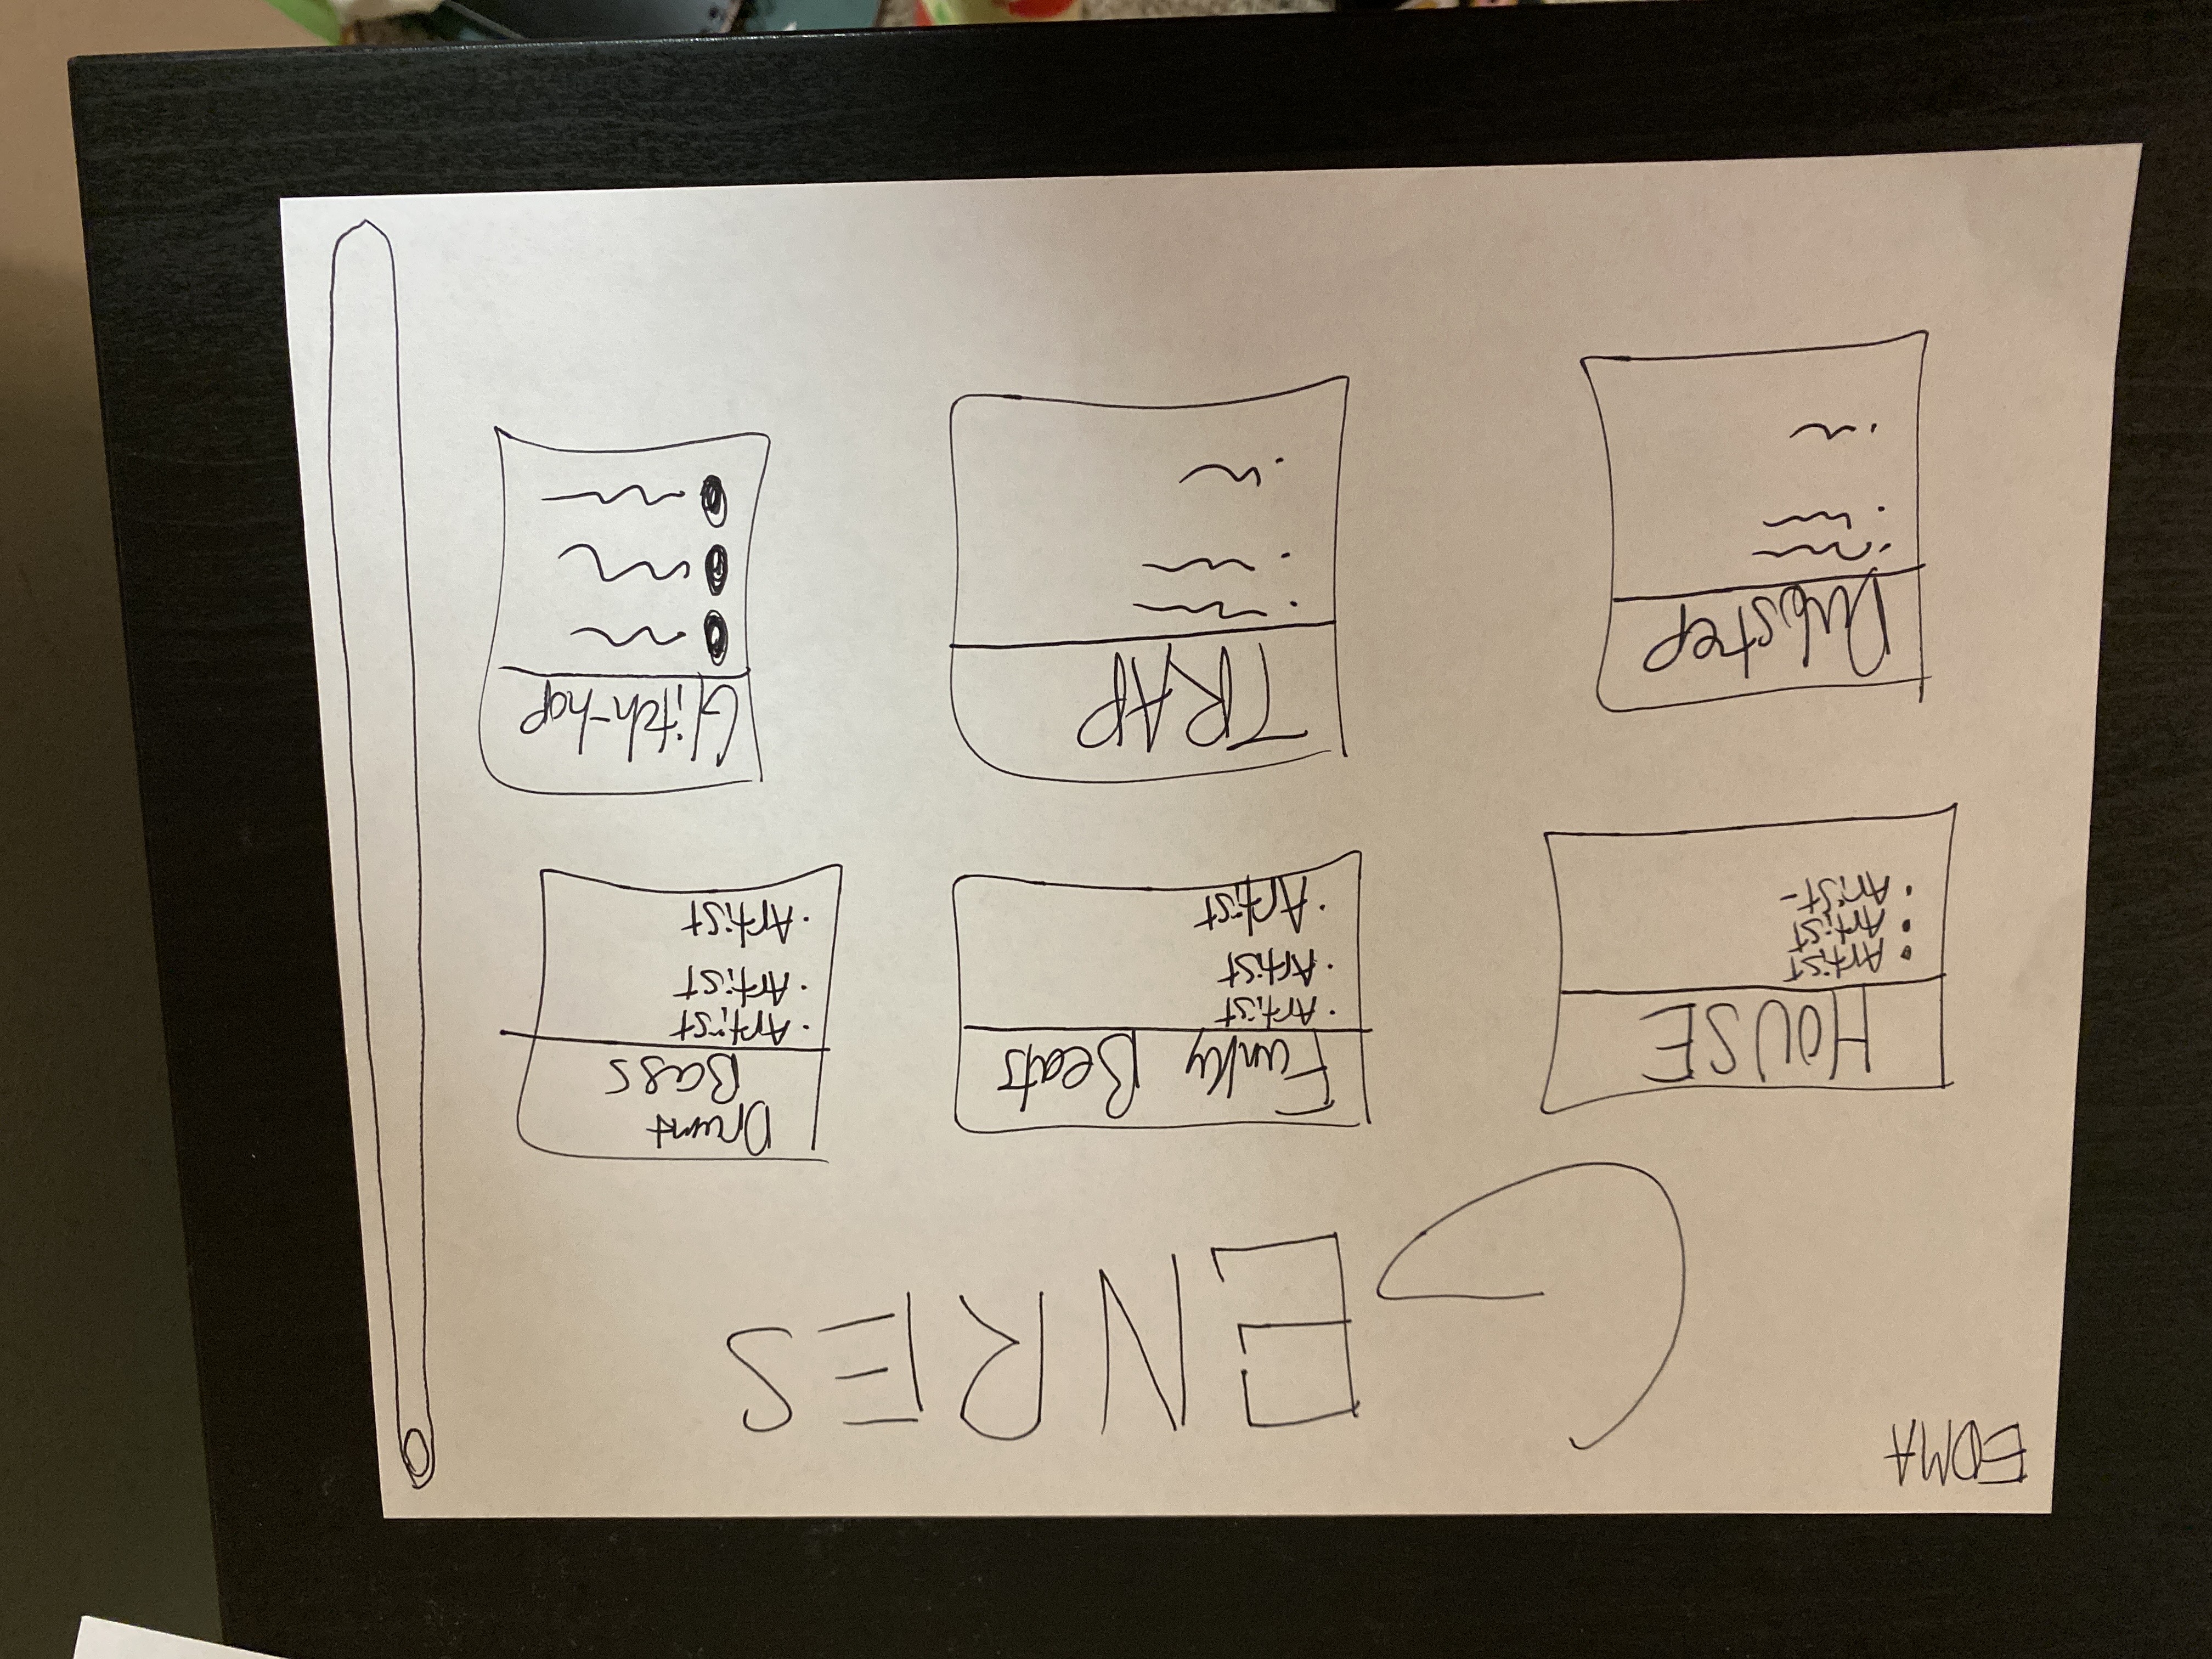 EDMA
GENRES
HOUSE
• Artist
• Artist
• Arist-
Funky Beats
· Artist
· Artist
· Artist
Drum+
Bass
· Artist
· Artist
· Artist
Dubstep
TRAP
Glitch-hop